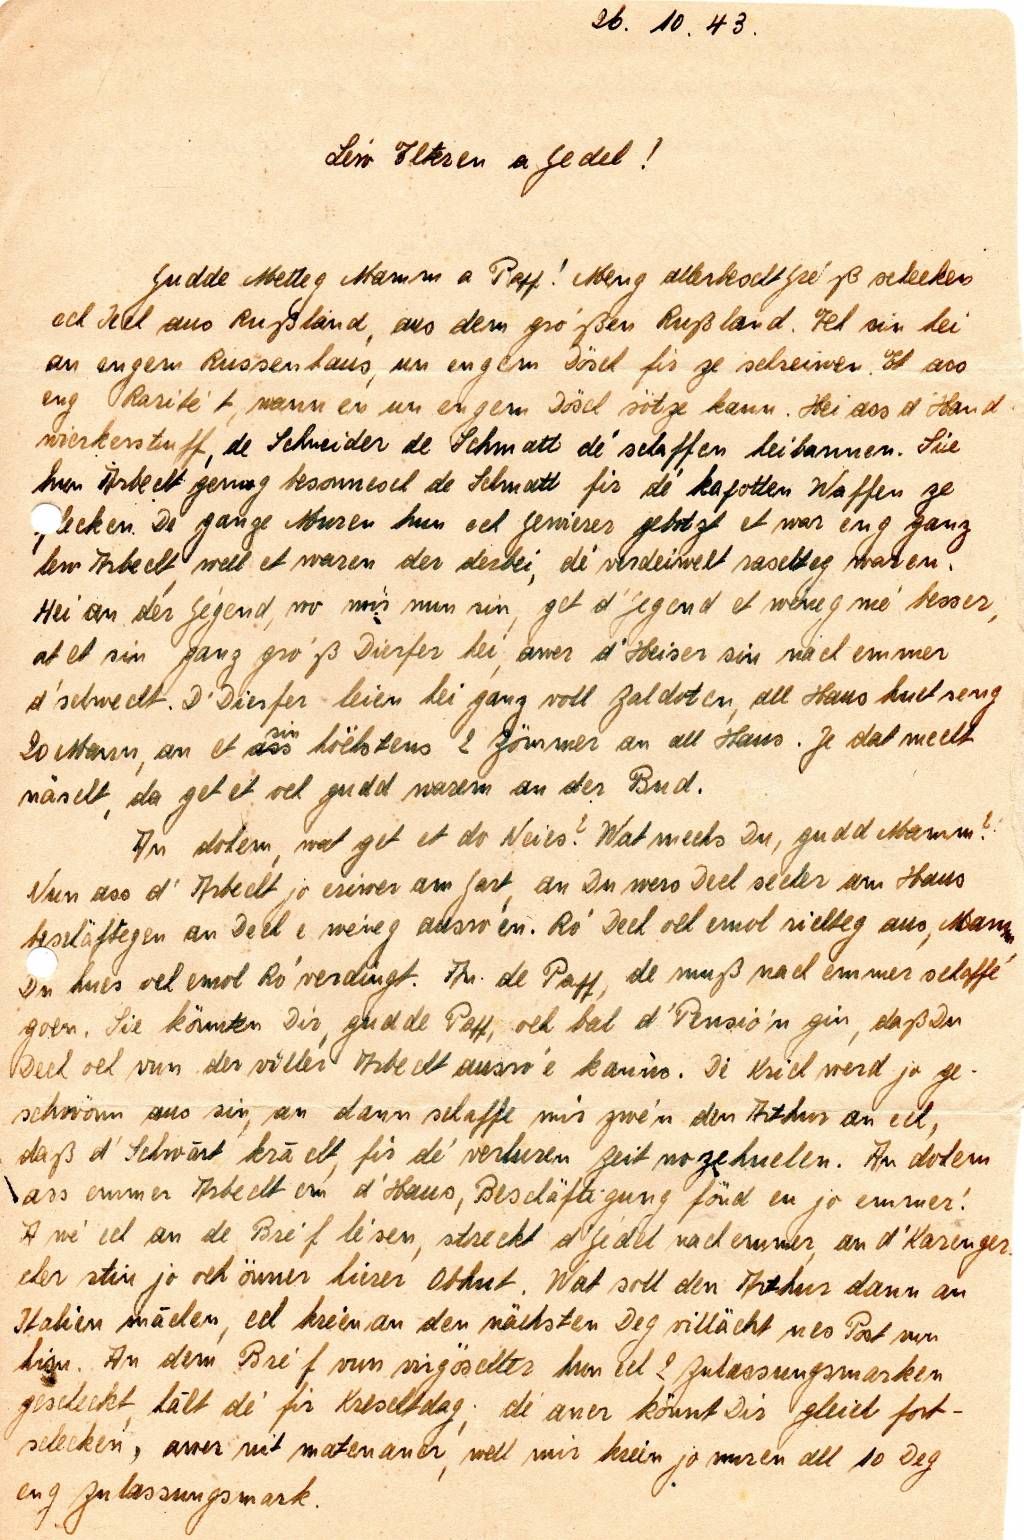 26. 10. 43.
Léiw Elteren a Jedel!
Gudde Metteg Mamm a Papp! Meng allerbescht Gré'ß schécken
ech Iech aus Rußland, aus dem gro'ßen Rußland. Ech sin hei
an engem Russenhaus, un engem Dösch fir ze schreiwen. Et ass
eng Rarité't, wann en un engem Dösch sötze kann. Hei ass d'Hand-
wierkerstuff, de Schneider de Schmatt dé schaffen heibannen. Sie
hun Arbecht genug besonnesch de Schmatt fir dé kapotten Waffen ze
flecken. De ganze Muren hun ech Gewierer gebotzt et war eng ganz
Arbecht, well et waren der derbei, dé verdeiwelt raschteg waren.
Hei an dér Gégend, wo mir nun sin, get d'Gegend et wéneg mé besser,
et sin ganz gro'ß Dierfer hei, awer d'Heiser sin nach emmer
d'schwecht. D'Dierfer leien hei ganz voll Zaldoten, all Haus huet seng
20 Mann, an et sin höchstens 2 Zömmer an all Haus. Je dat mecht
näscht, da get et och gudd warem an der Bud.
An dohem, wat get et do Neies? Wat mechs Du, gudd Mamm?
Nun ass d'Arbecht jo eriwer am Gart, an Du wers Dech secher am Haus
beschäftegen an Dech e wéneg ausro'en. Ro' Dech och emol richteg aus, Mamm
Du hues och emol Ro' verdingt. An de Papp, de muß nach emmer schaffé
goen. Sie könnten Dir, gudde Papp, och bal d'Pensio'n gin, daß Du
Dech och vun der viller Arbecht ausro'e kanns. De Krich werd jo ge-
schwönn aus sin, an dann schaffe mir zwé'n den Arthur an ech,
daß d'Schwärt kracht, fir dé verluren Zeit nozehuelen. An dohem
ass emmer Arbecht em d'Haus, Beschäftigung fönd en jo emmer!
A wé ech an de Bré'f lésen, streckt d'Jedel nach emmer, an d'Karenger
eier stin jo och önner hierer Obhut. Wat soll den Arthur dann an
Italien mächen, ech kréien an den nächsten Deg villächt nes Post vun
him. An dem Bré'f vun virgöschter hun ech 2 Zulassungsmarken
geschéckt, hält dé fir Kreschtdag; dé aner könnt Dir gleich fort-
schécken, awer nit mateneaner, well mir kréien jo nuren all 10 Deg
eng Zulassungsmark.